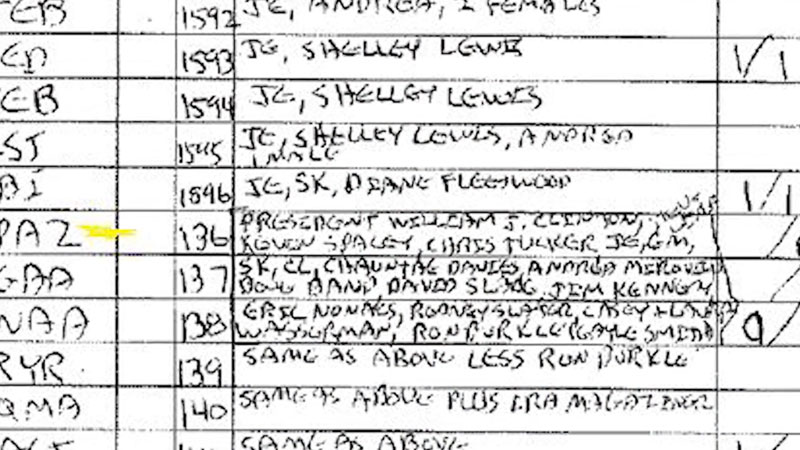 EB 1592 JE, ANDREA, 2 FEMALES
EN 1593 JE, SHELLEY LEWIS 1/1
EB 1594 JE, SHELLEY LEWIS
ST 1595 JE, SHELLEY LEWIS, ANDREA
1 MALE
1596 JE, SK, DIANE FLEETWOOD 1/1
PAZ 136 PRESIDENT WILLIAM J. CLINTON,
KEVEN SPACEY, CHRIS TUCKER JE, GM,
137 SK, CL, CHAUNTAE DAVIES, ANDREA
DOUG BAND DAVID JIM KENNEY
NAA 138 ERIC NONACS, RODNEY SLATER, CASEY
WASSERMAN, RON BURKLE GAYLE SMITH 9/
RYR 139 SAME AS ABOVE LESS RON BURKLE
QMA 140 SAME AS ABOVE PLUS IRA MAGAZINER
SAME AS ABOVE